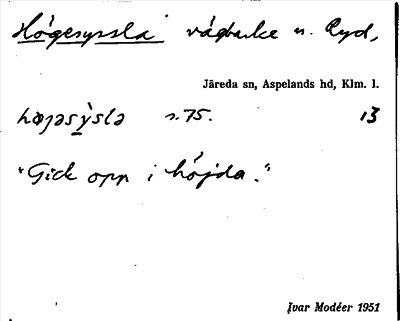 Högesyssla vägbacke n. Ryd,
Järeda sn, Aspelands hd, Klm. l.
højəsỳslə s.75. 13
"Gick opp i höjda."
Ivar Modéer 1951